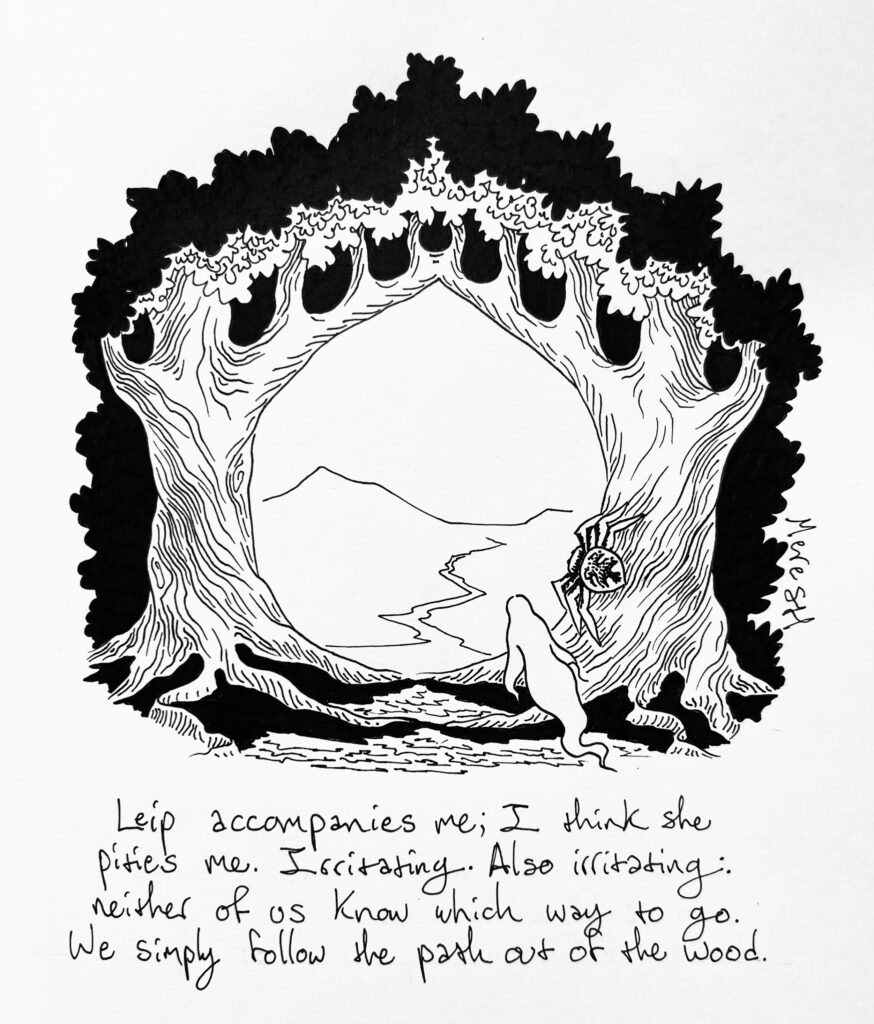 Leip accompanies me; I think she
pities me. Irritating. Also irritating:
neither of us know which way to go.
We simply follow the path out of the wood.